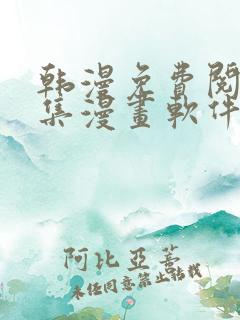 韩漫免費閱
集漫畫軟件
阿比亞蓋
未经同意禁止转载